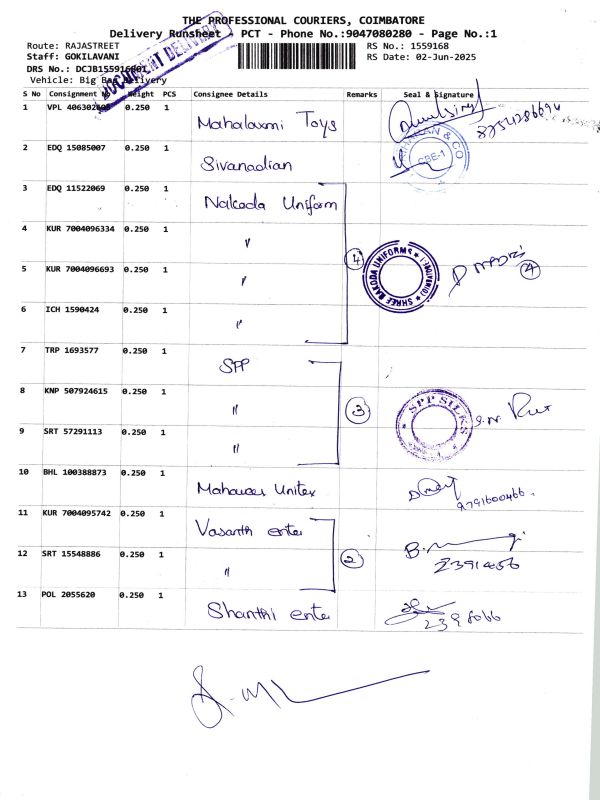 THE PROFESSIONAL COURIERS, COIMBATORE
Delivery Runsheet - PCT - Phone No.:9047080280 - Page No.:1
Route: RAJASTREET
RS No.: 1559168
Staff: GOKILAVANI
RS Date: 02-Jun-2025
DRS No.:
DOCUMENT DELIVERY
Vehicle: Big Bag Delivery
S No Consignment No Weight PCS Consignee Details Remarks Seal & Signature
1 VPL 0.250 1 Mahalaxmi Toys
& CO
CBE-1
2 EDQ 15085007 0.250 1 Sivanadian
3 EDQ 11522069 0.250 1 Nakoda Uniform
4 KUR 7004096334 0.250 1 "
5 KUR 7004096693 0.250 1 "
4
SHREE NAKODA UNIFORMS
4
6 ICH 1590424 0.250 1 "
7 TRP 1693577 0.250 1 SPP
8 KNP 507924615 0.250 1 "
3
SPP SILKS
9 SRT 57291113 0.250 1 "
10 BHL 100388873 0.250 1 Mahaveer Unitex
9791600466.
11 KUR 7004095742 0.250 1 Vasanth enter
12 SRT 15548886 0.250 1 "
2
2391456
13 POL 2055620 0.250 1 Shanthi enter
2398066